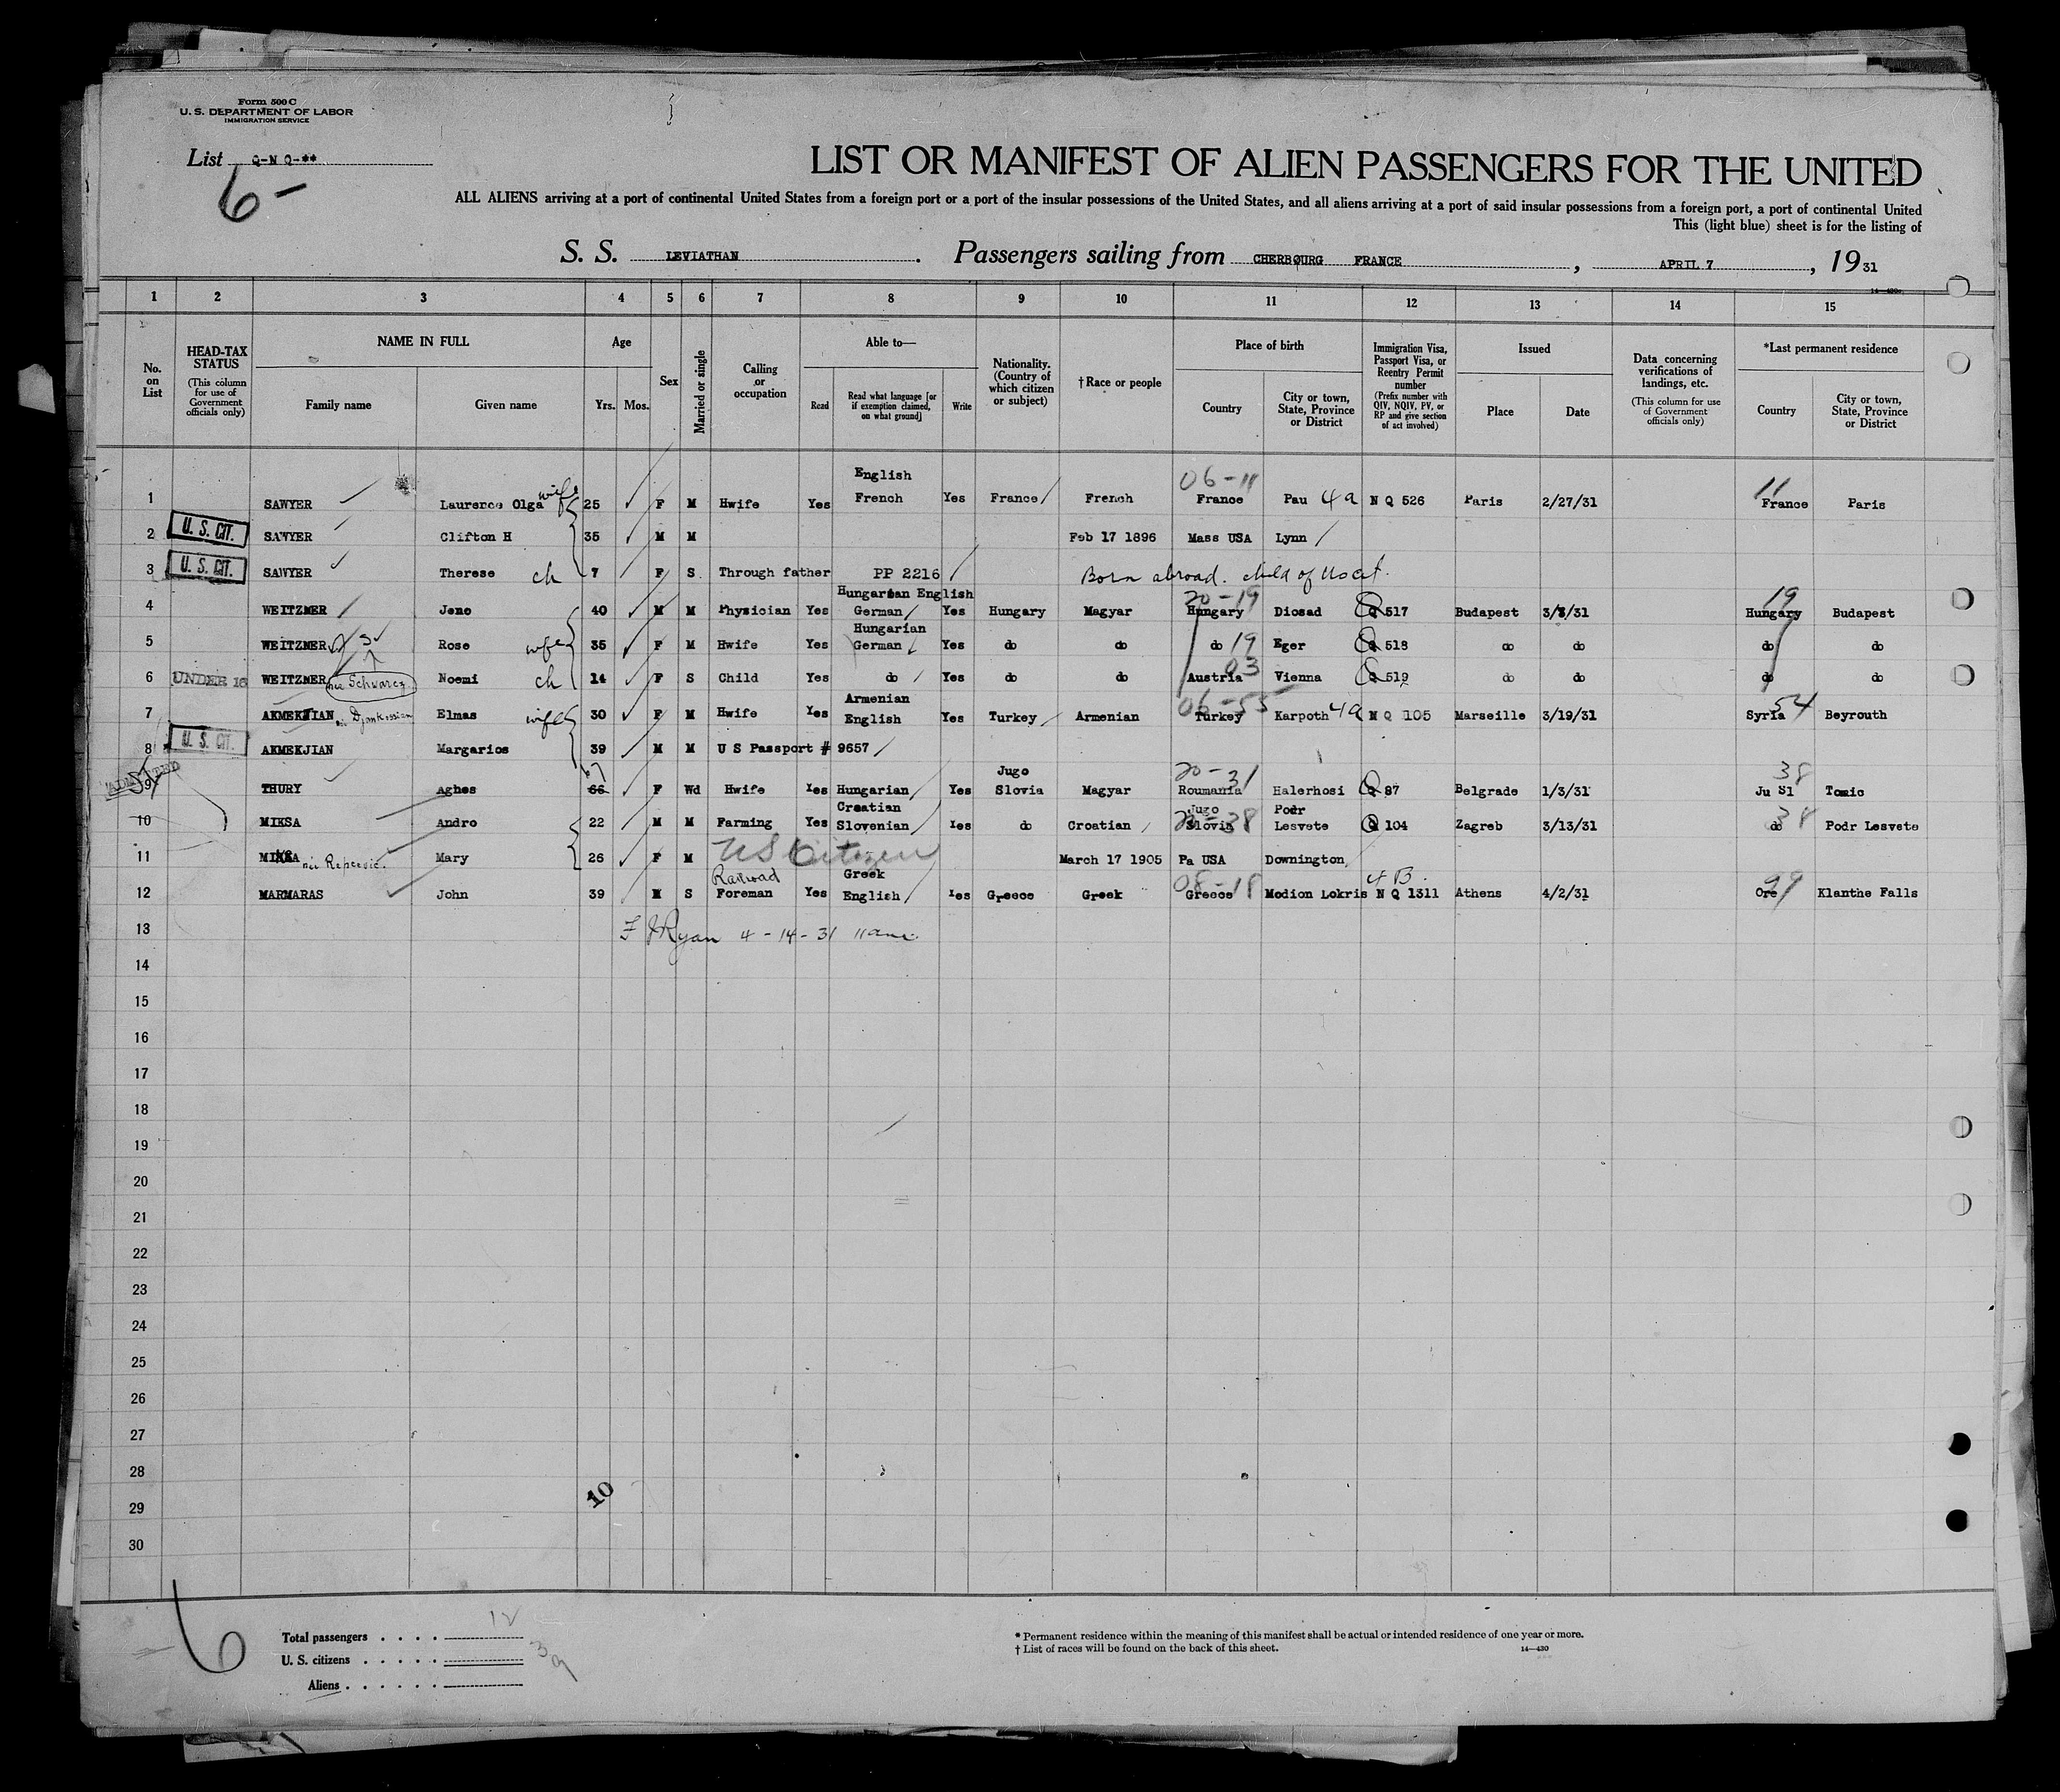 Form 500 C
U. S. DEPARTMENT OF LABOR
IMMIGRATION SERVICE
List Q-N Q-**
6-
LIST OR MANIFEST OF ALIEN PASSENGERS FOR THE UNITED
ALL ALIENS arriving at a port of continental United States from a foreign port or a port of the insular possessions of the United States, and all aliens arriving at a port of said insular possessions from a foreign port, a port of continental United
This (light blue) sheet is for the listing of
S. S. LEVIATHAN . Passengers sailing from CHERBOURG FRANCE , APRIL 7 , 19 31
1 2 3 4 5 6 7 8 9 10 11 12 13 14 15
No. on List
HEAD-TAX STATUS (This column for use of Government officials only)
NAME IN FULL Family name Given name
Age Yrs. Mos.
Sex
Married or single
Calling or occupation
Able to— Read Read what language [or if exemption claimed, on what ground] Write
Nationality. (Country of which citizen or subject)
†Race or people
Place of birth Country City or town, State, Province or District
Immigration Visa, Passport Visa, or Reentry Permit number (Prefix number with QIV, NQIV, PV, or RP and give section of act involved)
Issued Place Date
Data concerning verifications of landings, etc. (This column for use of Government officials only)
*Last permanent residence Country City or town, State, Province or District
1 SAWYER Laurence Olga wife 25 F M Hwife Yes English French Yes France French 06-11 France Pau 4a N Q 526 Paris 2/27/31 11 France Paris
2 U. S. CIT. SAWYER Clifton H 35 M M Feb 17 1896 Mass USA Lynn
3 U. S. CIT. SAWYER Therese ch 7 F S Through father PP 2216 Born abroad. child of US cit.
4 WEITZNER Jeno 40 M M Physician Yes Hungarian English German Yes Hungary Magyar 20-19 Hungary Diosad Q 517 Budapest 3/3/31 19 Hungary Budapest
5 WEITZNER Rose wife 35 F M Hwife Yes Hungarian German Yes do do do 19 Eger Q 518 do do do do
6 UNDER 16 WEITZNER nee Schwarcz Noemi ch 14 F S Child Yes do Yes do do 03 Austria Vienna Q 519 do do do do
7 AKMEKJIAN Elmas wife 30 F M Hwife Yes Armenian English Yes Turkey Armenian 06-55 Turkey Karpoth 4a N Q 105 Marseille 3/19/31 Syria 54 Beyrouth
8 U. S. CIT. AKMEKJIAN Margarios 39 M M U S Passport # 9657
9 ADMITTED THURY Aghes 67 66 F Wd Hwife Yes Hungarian Yes Jugo Slovia Magyar 20-31 Roumania Halerhosi Q 87 Belgrade 1/3/31 38 Ju Sl Tomic
10 MIKSA Andro 22 M M Farming Yes Croatian Slovenian Yes do Croatian 20-38 Jugo Slovia Podr Lesvete Q 104 Zagreb 3/13/31 do 38 Podr Lesvete
11 MIKSA nee Repcevic. Mary 26 F M US Citizen March 17 1905 Pa USA Downington
12 MARMARAS John 39 M S Railroad Foreman Yes Greek English Yes Greece Greek 08-18 Greece Modion Lokris 4B. N Q 1311 Athens 4/2/31 Ore 99 Klanthe Falls
13 F J Ryan 4-14-31 11am.
14
15
16
17
18
19
20
21
22
23
24
25
26
27
28
29
30
10
6
Total passengers . . . . 12
U. S. citizens . . . . . 3
Aliens . . . . . . 9
* Permanent residence within the meaning of this manifest shall be actual or intended residence of one year or more.
† List of races will be found on the back of this sheet. 14—430